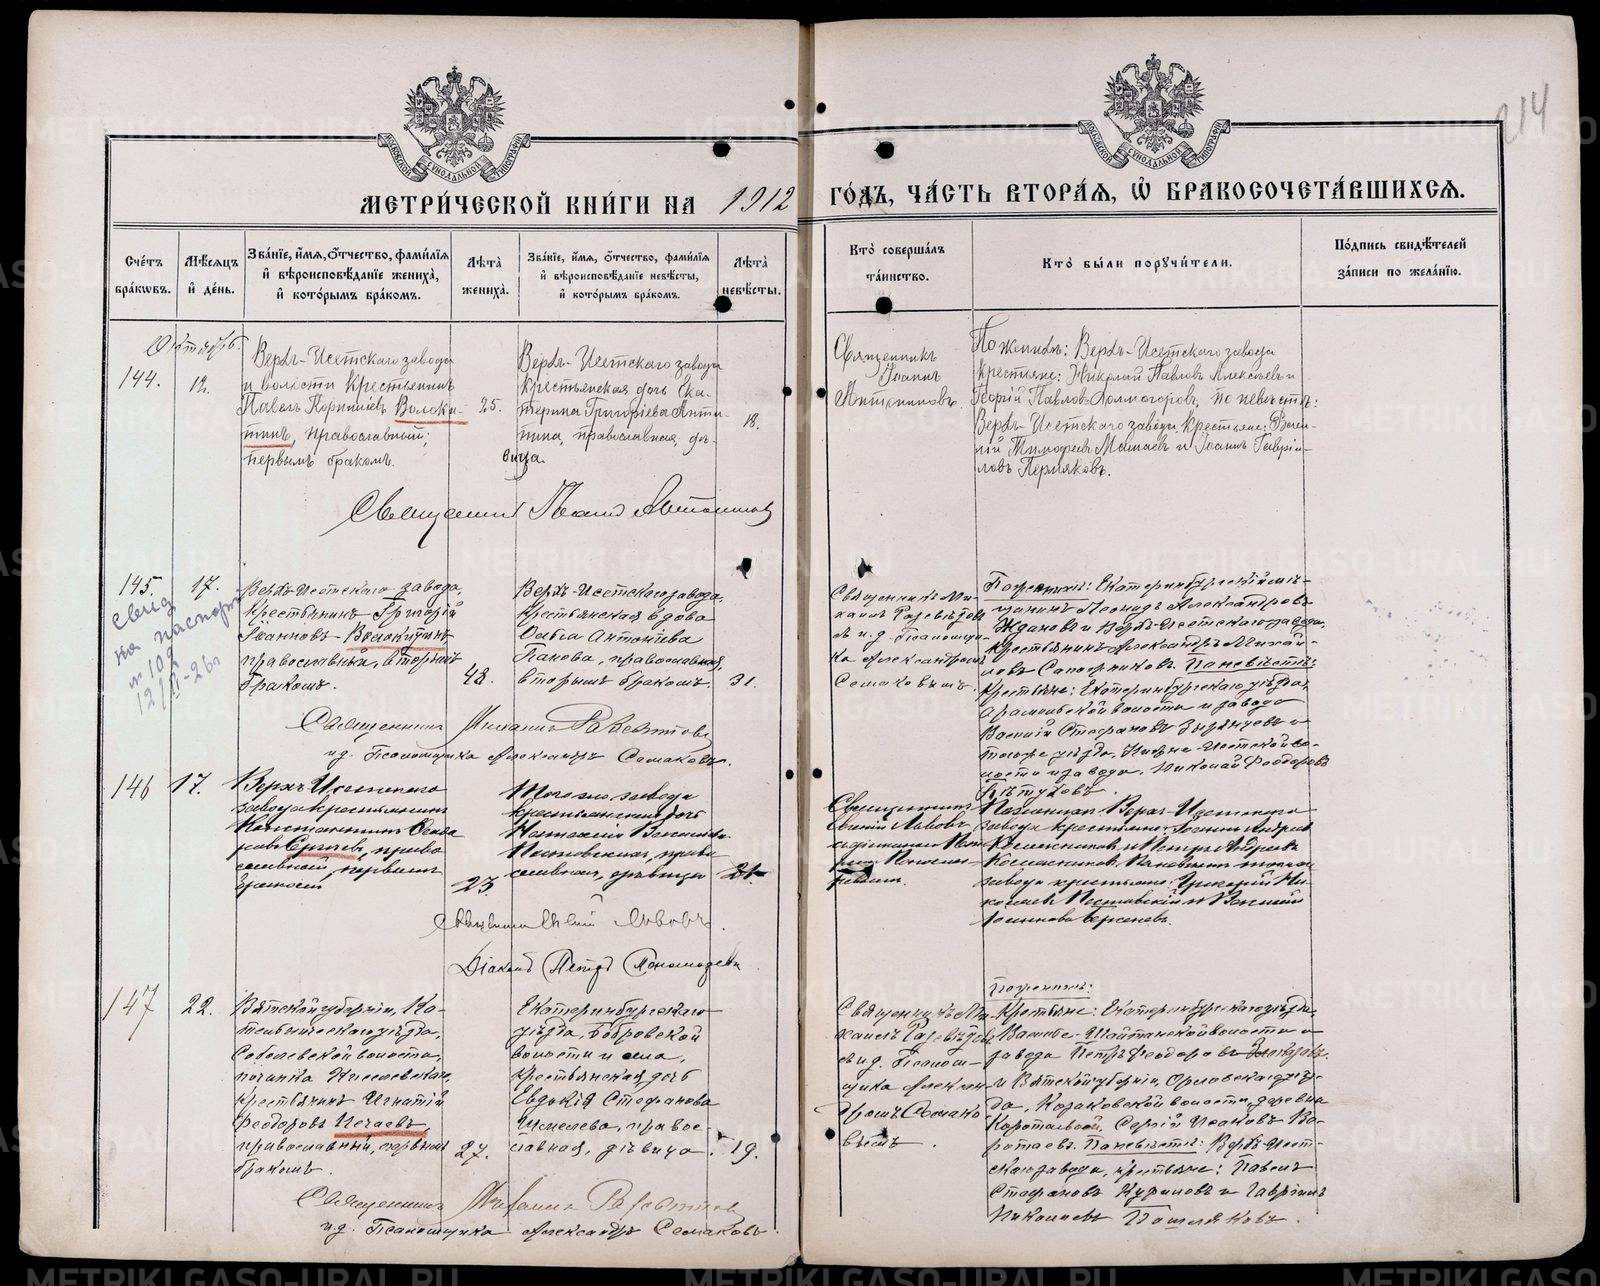 214
МОСКОВСКОЙ СѴНОДАЛЬНОЙ ТИПОГРАФІИ
МОСКОВСКОЙ СѴНОДАЛЬНОЙ ТИПОГРАФІИ
МЕТРИ́ЧЕСКОЙ КНИ́ГИ НА 1912 ГО́ДЪ, ЧА́СТЬ ВТОРА́Я, Ѽ БРАКОСОЧЕТА́ВШИХСЯ.
Сче́тъ
бра́кѡвъ.
Мѣ́сяцъ
и҆ де́нь.
Зва́нїе, и҆́мя, ѻ҆́тчество, фами́лїя
и҆ вѣроисповѣ́данїе жениха̀,
и҆ кото́рымъ бра́комъ.
Лѣ́та
жениха̀.
Зва́нїе, и҆́мя, ѻ҆́тчество, фами́лїя
и҆ вѣроисповѣ́данїе невѣ́сты,
и҆ кото́рымъ бра́комъ.
Лѣ́та
невѣ́сты.
Кто̀ соверша́лъ
та́инство.
Кто̀ бы́ли порꙋчи́тели.
По́дпись свидѣ́телей
за́писи по жела́нїю.
Октябрь.
144.
12.
Верхъ-Исетскаго завода
и волости крестьянинъ
Павелъ Корниліевъ Волоки-
тинъ, православный,
первымъ бракомъ.
25.
Верхъ-Исетскаго завода
крестьянская дочь Ека-
терина Григоріева Анти-
пина, православная, дѣ-
вица.
18.
Священникъ
Іоаннъ
По женихѣ: Верхъ-Исетскаго завода
крестьяне: Николай Павловъ Алексѣевъ и
Георгій Павловъ Холмогоровъ, по невѣстѣ:
Верхъ-Исетскаго завода крестьяне: Васи-
лій Тимофеевъ Мамаевъ и Іоаннъ Гаврії-
ловъ Пермяковъ.
Священникъ Іоаннъ
145.
17.
Свид
на паспорт
№ 102
12/II-26г
Верхъ-Исетскаго завода,
крестьянинъ Григорій
Іоанновъ Волокитинъ
православный, вторымъ
бракомъ.
48.
Верхъ-Исетскаго завода,
крестьянская вдова
Ольга Антоніева
Панова, православная,
вторымъ бракомъ.
31.
Священникъ Ми-
хаилъ
и и.д. Псаломщи-
ка Александромъ
Семаковымъ.
По женихѣ: Екатеринбургскій мѣ-
щанинъ Леонидъ Александровъ
Ждановъ и Верхъ-Исетскаго завода,
крестьянинъ Александръ Михай-
ловъ Сапожниковъ. По невѣстѣ:
крестьяне: Екатеринбургскаго уѣзда,
Арамильской волости и завода
Василій Стефановъ Зырянцевъ и
тогоже уѣзда, Нижне-Исетской во-
лости и завода, Николай Феодоровъ
Пѣтуховъ.
Священникъ Михаилъ
и.д. Псаломщика Александръ Семаковъ.
146
17.
Верхъ-Исетскаго
завода крестьянинъ
Константинъ
Сергѣевъ, право
славный, первымъ
бракомъ
23.
Того же завода
крестьянская дочь
Наталія
православная, дѣвица
21
Священникъ
Евгеній Львовъ
По женихѣ: Верхъ-Исетскаго
завода крестьяне: Іоаннъ Андреев
Колясниковъ и Петръ Андреевъ
Колясниковъ, По невѣстѣ тогоже
завода крестьяне: Григорій Ни-
колаевъ и Василій
Священникъ Евгеній Львовъ.
Діаконъ Петръ Пономаревъ
147
22.
Вятской губерніи, Ко-
тельническаго уѣзда,
Соболевской волости,
починка Киселевскаго,
крестьянинъ Игнатій
Феодоровъ Нечаевъ,
православный, первымъ
бракомъ.
27.
Екатеринбургскаго
уѣзда, Бобровской
волости и села,
крестьянская дочь
Евдокія Стефанова
Шмелева, право-
славная, дѣвица.
19.
Священникъ Ми-
хаилъ
и и.д. Псалом-
щика Алексан-
дромъ Семако
вымъ.
По женихѣ:
крестьяне: Екатеринбургскаго уѣзда,
Васильево-Шайтанской волости и
завода Петръ Феодоровъ
и Вятской губерніи, Орловскаго уѣз-
да, Казаковской волости, деревни
Сергій Исаковъ Во-
ротаевъ. По невѣстѣ: Верхъ-Исет-
скаго завода, крестьяне: Павелъ
Стефановъ Куриновъ и Гавріилъ
Николаевъ
Священникъ Михаилъ
и.д. Псаломщика Александръ Семаковъ.
METRIKI.GASO-URAL.RU